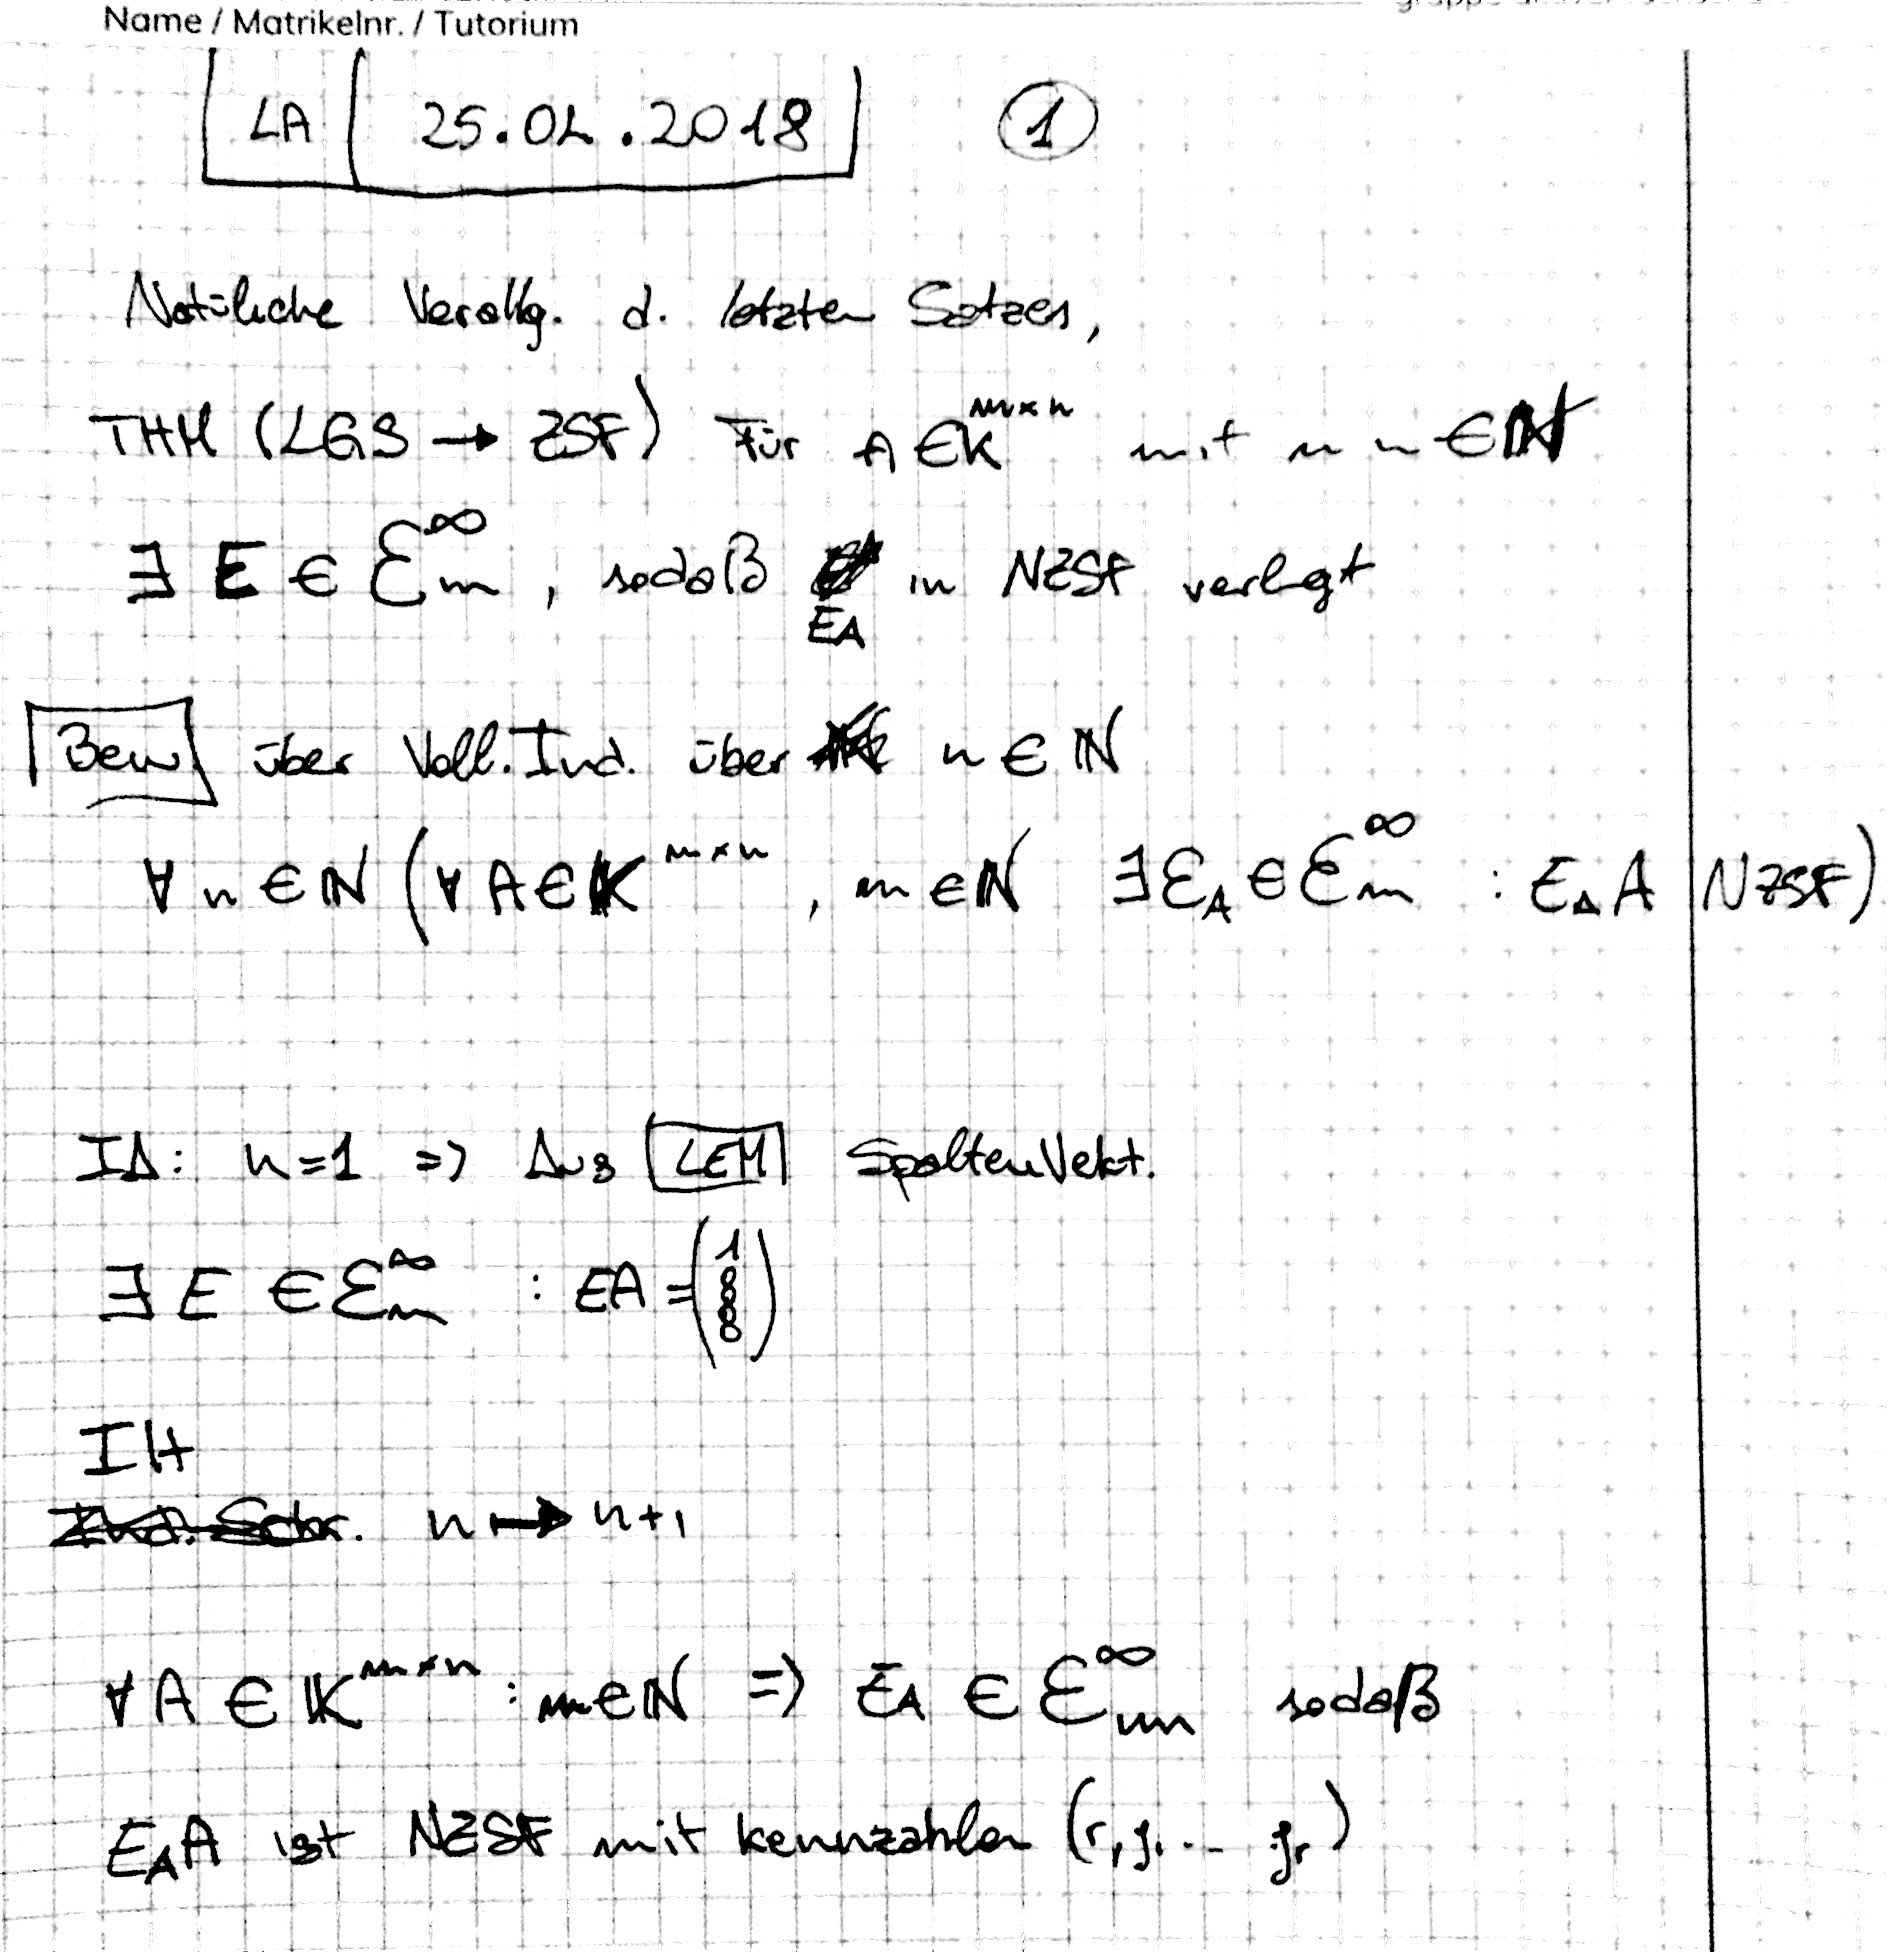 Name / Matrikelnr. / Tutorium
LA 25.04.2018 1
Natüliche Verallg. d. letzten Satzes,
THM (LGS → ZSF) Für A ∈ K^{m×n} mit m n ∈ ℕ
∃ E ∈ ℰ_m^∞, sodaß in NZSF verlegt
EA
Bew über Voll. Ind. über n ∈ ℕ
∀ n ∈ ℕ (∀ A ∈ 𝕂^{m×n}, m ∈ ℕ ∃ ℰ_A ∈ ℰ_m^∞ : E_A A NZSF)
IA: n=1 => Aus LEM SpaltenVekt.
∃ E ∈ ℰ_m^∞ : EA = (1 0 0 0 0)
IH
Ind. Schr. n ↦ n+1
∀ A ∈ 𝕂^{m×n} : m ∈ ℕ => E_A ∈ ℰ_m^∞ sodaß
E_A A ist NZSF mit kennzahlen (r, j_1 ... j_r)